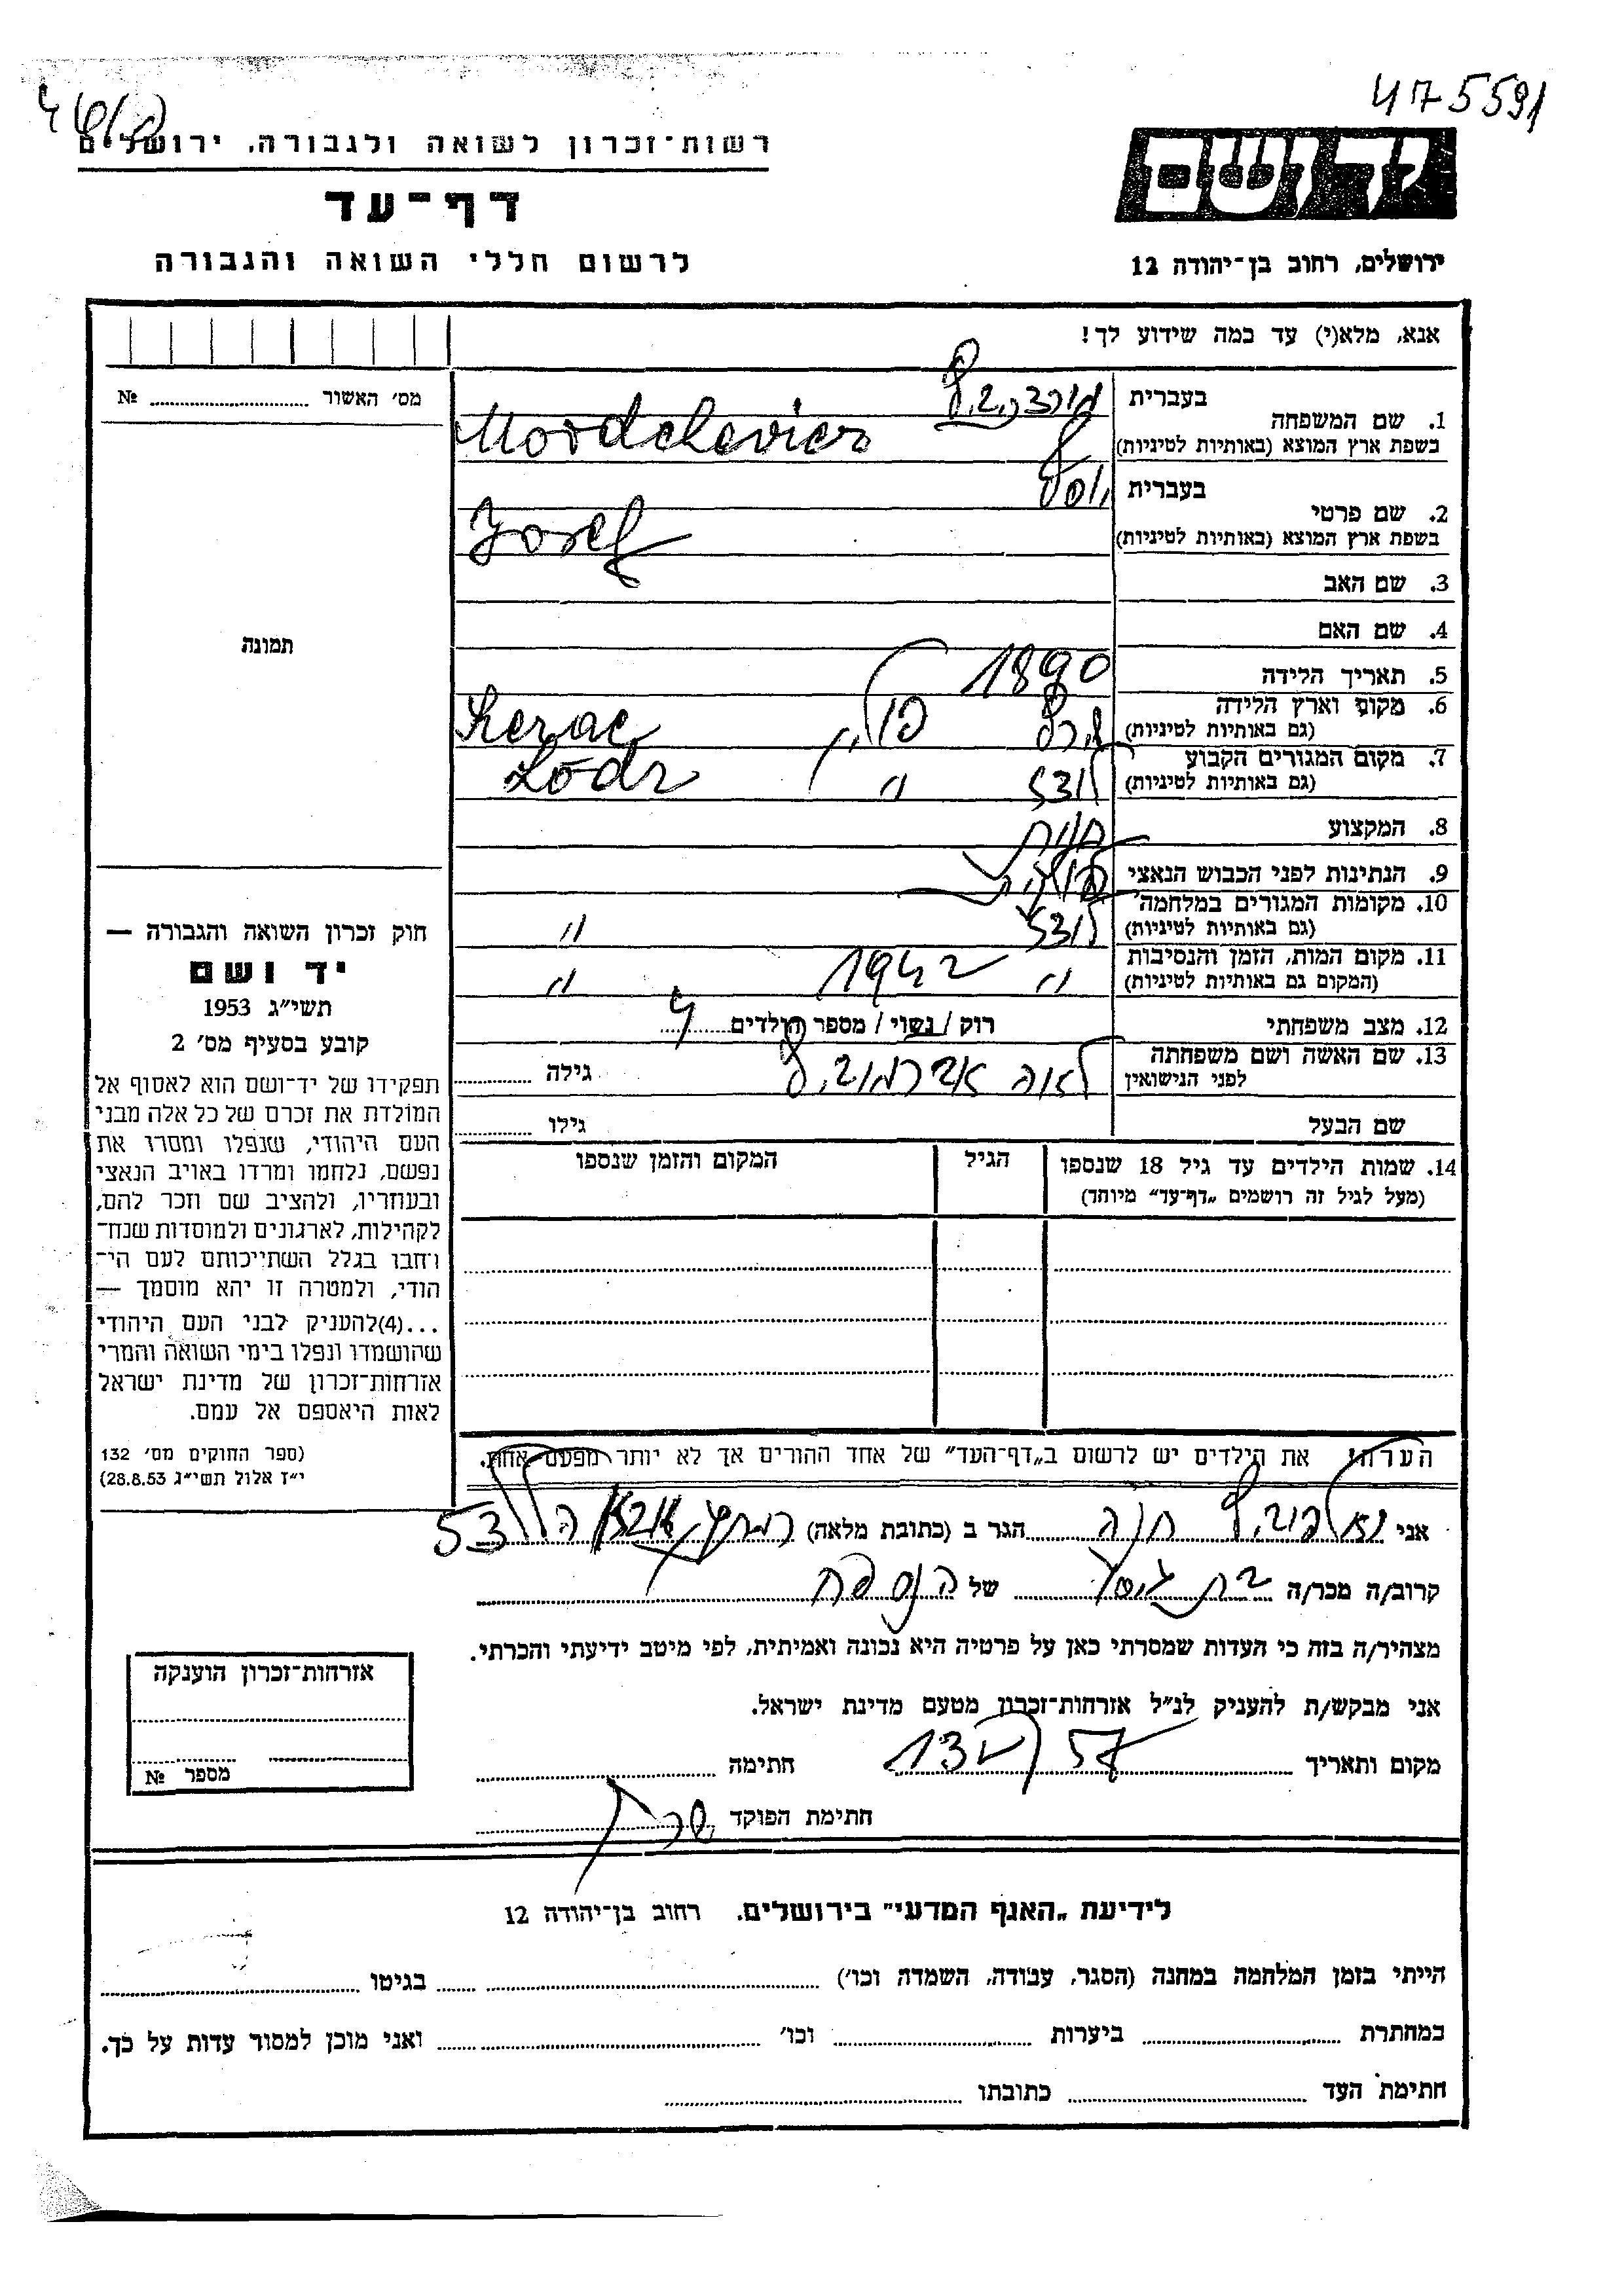 475591
רשות־זכרון לשואה ולגבורה, ירושלים
יד ושם
דף־עד
לרשום חללי השואה והגבורה
ירושלים, רחוב בן־יהודה 12
אנא, מלא(י) עד כמה שידוע לך!
מס' האשור № 
תמונה
1. שם המשפחה
בעברית
בשפת ארץ המוצא (באותיות לטיניות)
Mordchevicz
2. שם פרטי
בעברית יוסף
בשפת ארץ המוצא (באותיות לטיניות)
Josef
3. שם האב
4. שם האם
5. תאריך הלידה 1890
6. מקום וארץ הלידה
(גם באותיות לטיניות)
פולין
7. מקום המגורים הקבוע
(גם באותיות לטיניות)
לודז' " Lodz
8. המקצוע
9. הנתינות לפני הכבוש הנאצי פולנית
10. מקומות המגורים במלחמה
(גם באותיות לטיניות)
לודז' "
11. מקום המות, הזמן והנסיבות
(המקום גם באותיות לטיניות)
" 1942 "
12. מצב משפחתי רוק / נשוי / מספר הילדים 4
13. שם האשה ושם משפחתה
לפני הנישואין
לאה אברמוביץ גילה
שם הבעל גילו
14. שמות הילדים עד גיל 18 שנספו
(מעל לגיל זה רושמים „דף־עד" מיוחד)
הגיל
המקום והזמן שנספו
הערה: את הילדים יש לרשום ב„דף־העד" של אחד ההורים אך לא יותר מפעם אחת.
חוק זכרון השואה והגבורה —
יד ושם
תשי"ג 1953
קובע בסעיף מס' 2
תפקידו של יד־ושם הוא לאסוף אל
המולדת את זכרם של כל אלה מבני
העם היהודי, שנפלו ומסרו את
נפשם, נלחמו ומרדו באויב הנאצי
ובעוזריו, ולהציב שם וזכר להם,
לקהילות, לארגונים ולמוסדות שנח־
רבו בגלל השתייכותם לעם הי־
הודי, ולמטרה זו יהא מוסמך —
...(4)להעניק לבני העם היהודי
שהושמדו ונפלו בימי השואה והמרי
אזרחות־זכרון של מדינת ישראל
לאות היאספם אל עמם.
(ספר החוקים מס' 132
י"ז אלול תשי"ג 28.8.53)
אני חנה הגר ב (כתובת מלאה) 53
קרוב/ה מכר/ה של הנספה
מצהיר/ה בזה כי העדות שמסרתי כאן על פרטיה היא נכונה ואמיתית, לפי מיטב ידיעתי והכרתי.
אני מבקש/ת להעניק לנ"ל אזרחות־זכרון מטעם מדינת ישראל.
מקום ותאריך חתימה
חתימת הפוקד
אזרחות־זכרון הוענקה
מספר №
לידיעת „האגף המדעי" בירושלים. רחוב בן־יהודה 12
הייתי בזמן המלחמה במחנה (הסגר, עבודה, השמדה וכו') בגיטו
במחתרת ביערות וכו' ואני מוכן למסור עדות על כך.
חתימת העד כתובתו